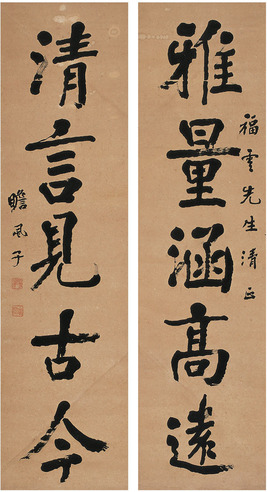 雅量涵高遠
福雲先生清正
清言見古今
瞻風子